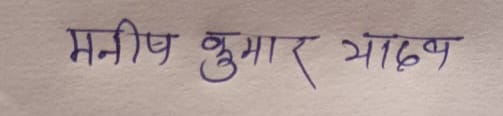 मनीष कुमार यादव